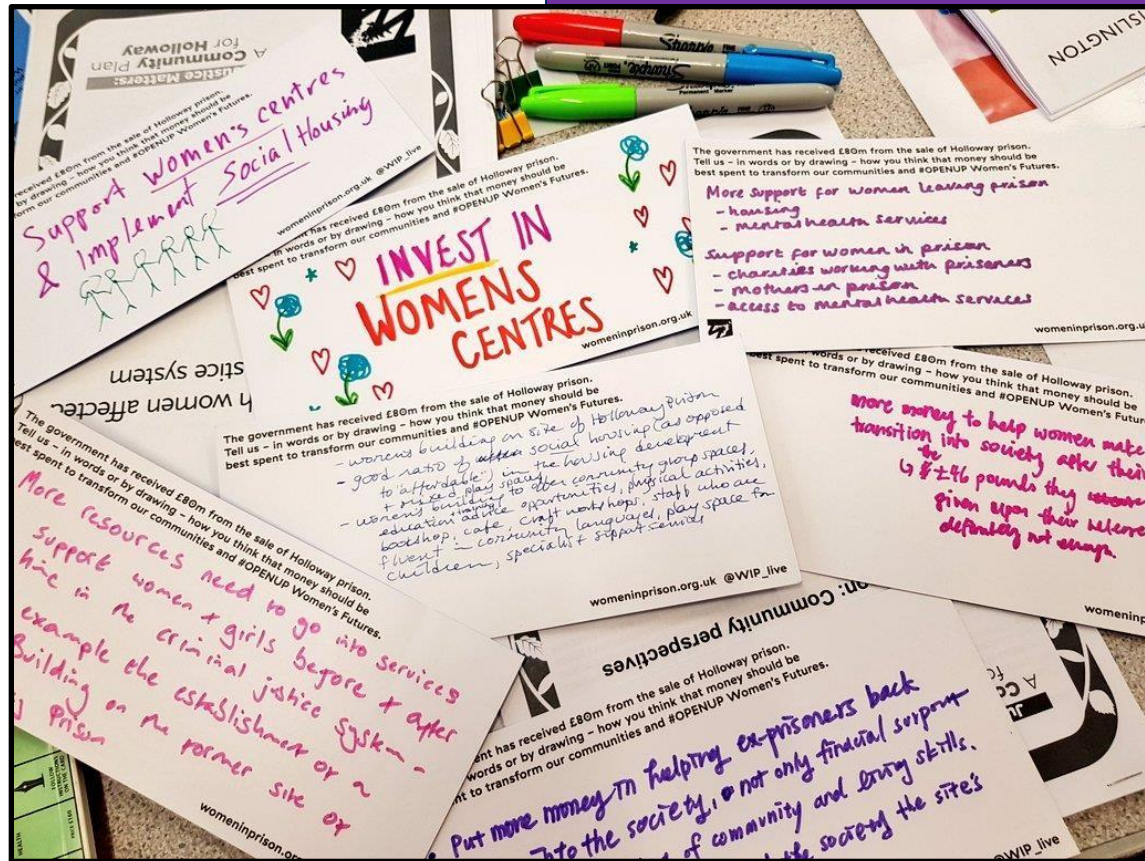 A Community Plan
for Holloway
Justice Matters:
ISLINGTON
Sharpie
Sharpie
received £80m from the sale of Holloway prison.
by drawing – how you think that money should be
form our communities and #OPENUP Women's Futures.
Support women's centres
& implement Social Housing
womeninprison.org.uk @WIP_live
ment has received £80m from the sale of Holloway prison.
in words or by drawing – how you think that money should be
best spent to transform our communities and #OPENUP Women's Futures.
INVEST IN
WOMENS
CENTRES
womeninprison.org.uk
The government has received £80m from the sale of Holloway prison.
Tell us – in words or by drawing – how you think that money should be
best spent to transform our communities and #OPENUP Women's Futures.
More support for women leaving prison
- housing
- mental health services
Support for women in prison
- charities working with prisoners
- mothers in prison
- access to mental health services
womeninprison.org.u
stice system
h women affected
The government has received £80m from the sale of Holloway prison.
Tell us – in words or by drawing – how you think that money should be
best spent to transform our communities and #OPENUP Women's Futures.
- women's building on site of Holloway Prison
- good ratio of social housing (as opposed
to 'affordable') in the housing development
+ mixed play spaces
- women's building to offer community group spaces,
education, training, advice opportunities, physical activities,
bookshop, cafe, craft workshops, staff who are
fluent in community languages, play space for
children, specialist support services
womeninprison.org.uk @WIP_live
received £80m from the sale of Holloway prison.
words or by drawing – how you think that money should be
best spent to transform our communities and #OPENUP Women's Futu
more money to help women make
transition into society after their
the
↳ £46 pounds they
given upon their release
definitely not enough.
womeninp
The government has received £80m from the sale of Holloway prison.
Tell us – in words or by drawing – how you think that money should be
best spent to transform our communities and #OPENUP Women's Futures.
More resources need to go into services
support women + girls before + after
time in the criminal justice system -
example the establishment of a
Building on the former site of
prison
womeninprison.or
on: Community perspectives
ent has received £80m from the sale of Holloway prison.
words or by drawing – how you think that money should be
nt to transform our communities and #OPENUP Women's Futures.
Put more money in helping ex-prisoners back
into the society, not only finacial support
of community and living skills.
the society the site's
@WIP_live
FOLLOW
INSTRUCTIONS
ON THE CARD
PRICE £160
HEALTH